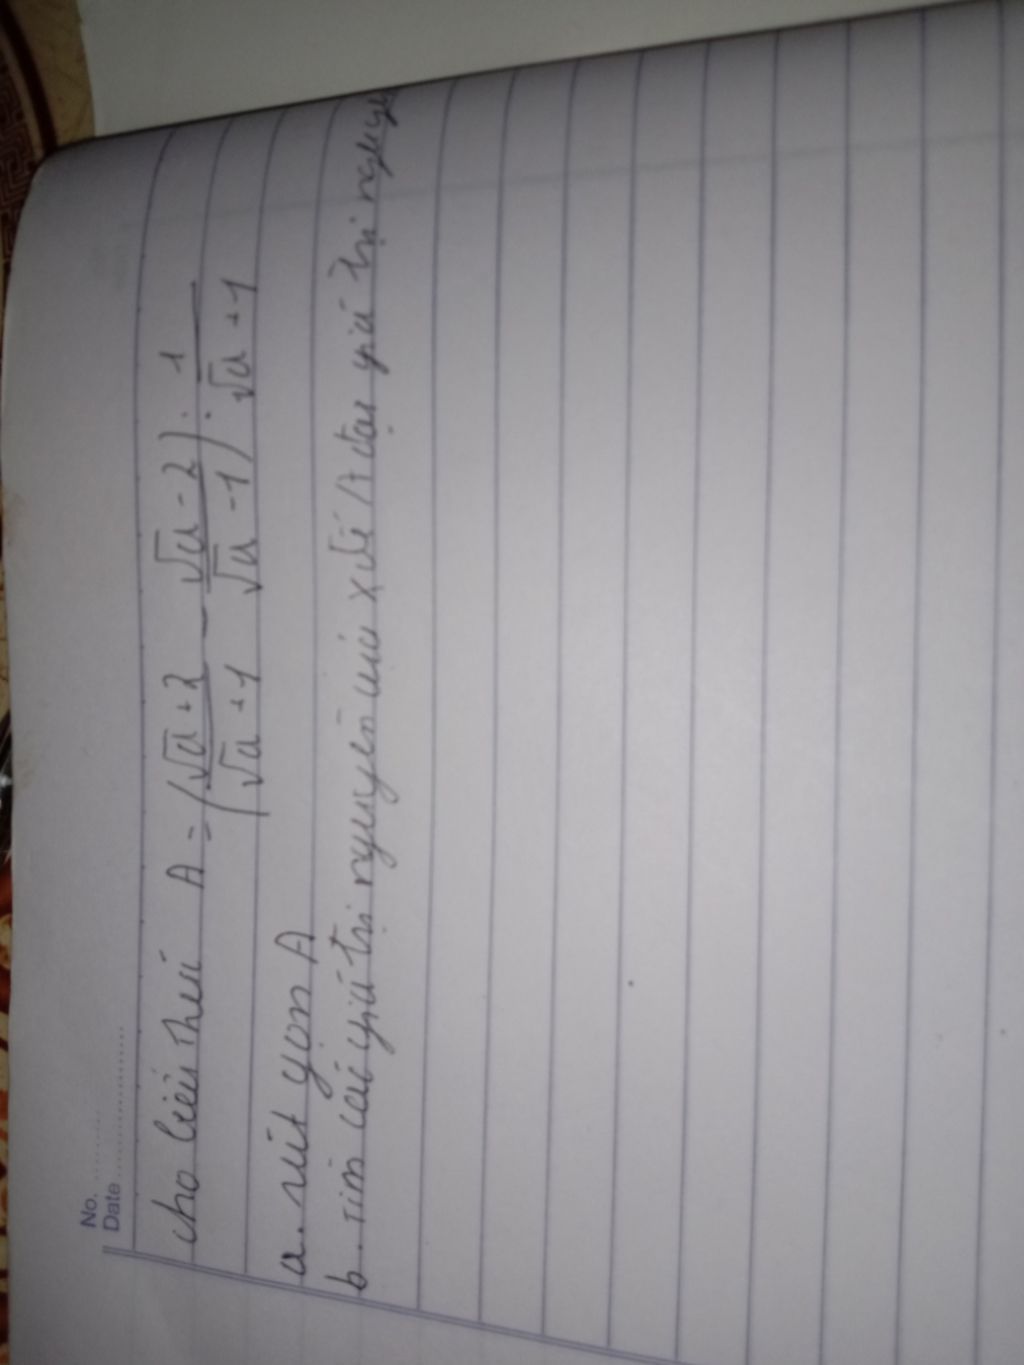 No. ..........
Date ......................
cho biểu thức A = (√a + 2 / √a + 1 - √a - 2 / √a - 1) : 1 / √a + 1
a. rút gọn A
b. Tìm các giá trị nguyên của x để A đạt giá trị